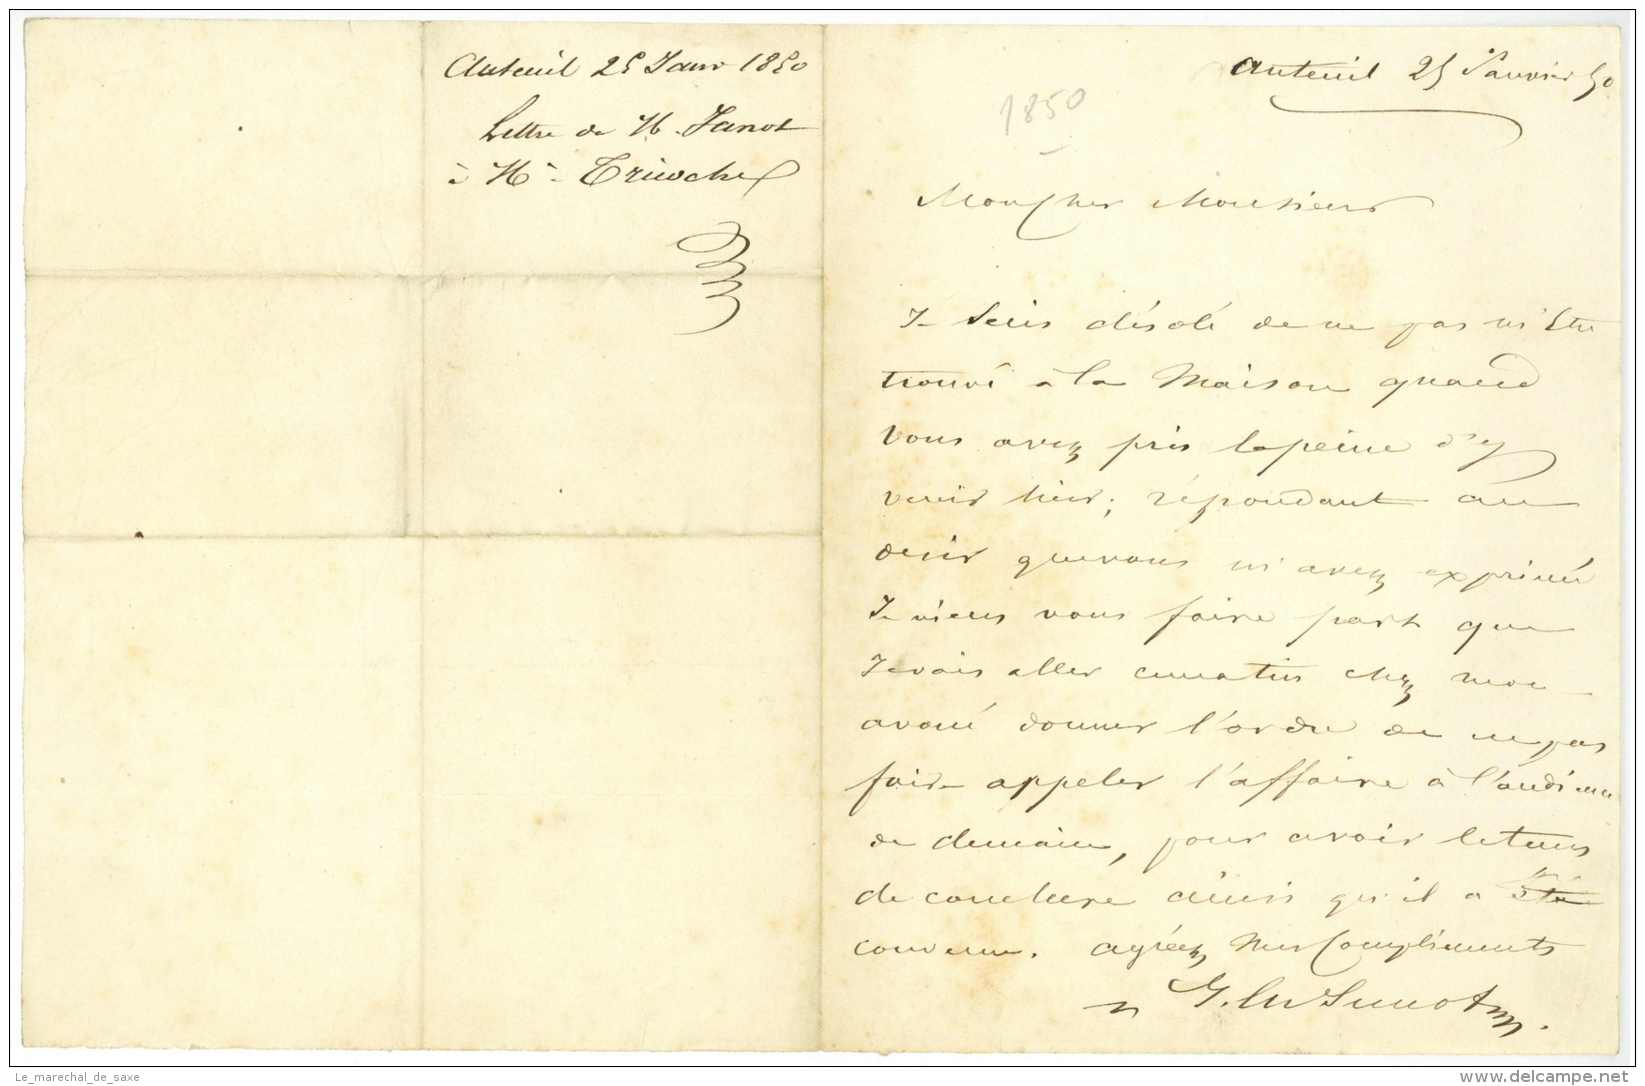 Auteuil 25 Janv 1850
Lettre de M. Janot
à Mr Trioche
1850
Auteuil 25 Janvier 50
Mon cher Monsieur
Je suis désolé de ne pas m'être
trouvé à la Maison quand
vous avez pris la peine d'y
venir hier; répondant au
desir que vous m'avez exprimé
Je viens vous faire part que
Je vais aller ce matin chez mon
avoué donner l'ordre de ne pas
faire appeler l'affaire à l'audience
de demain, pour avoir le tems
de conclure ainsi qu'il a été
convenu. agréez mes Compliments
Le_marechal_de_saxe
delcampe.net